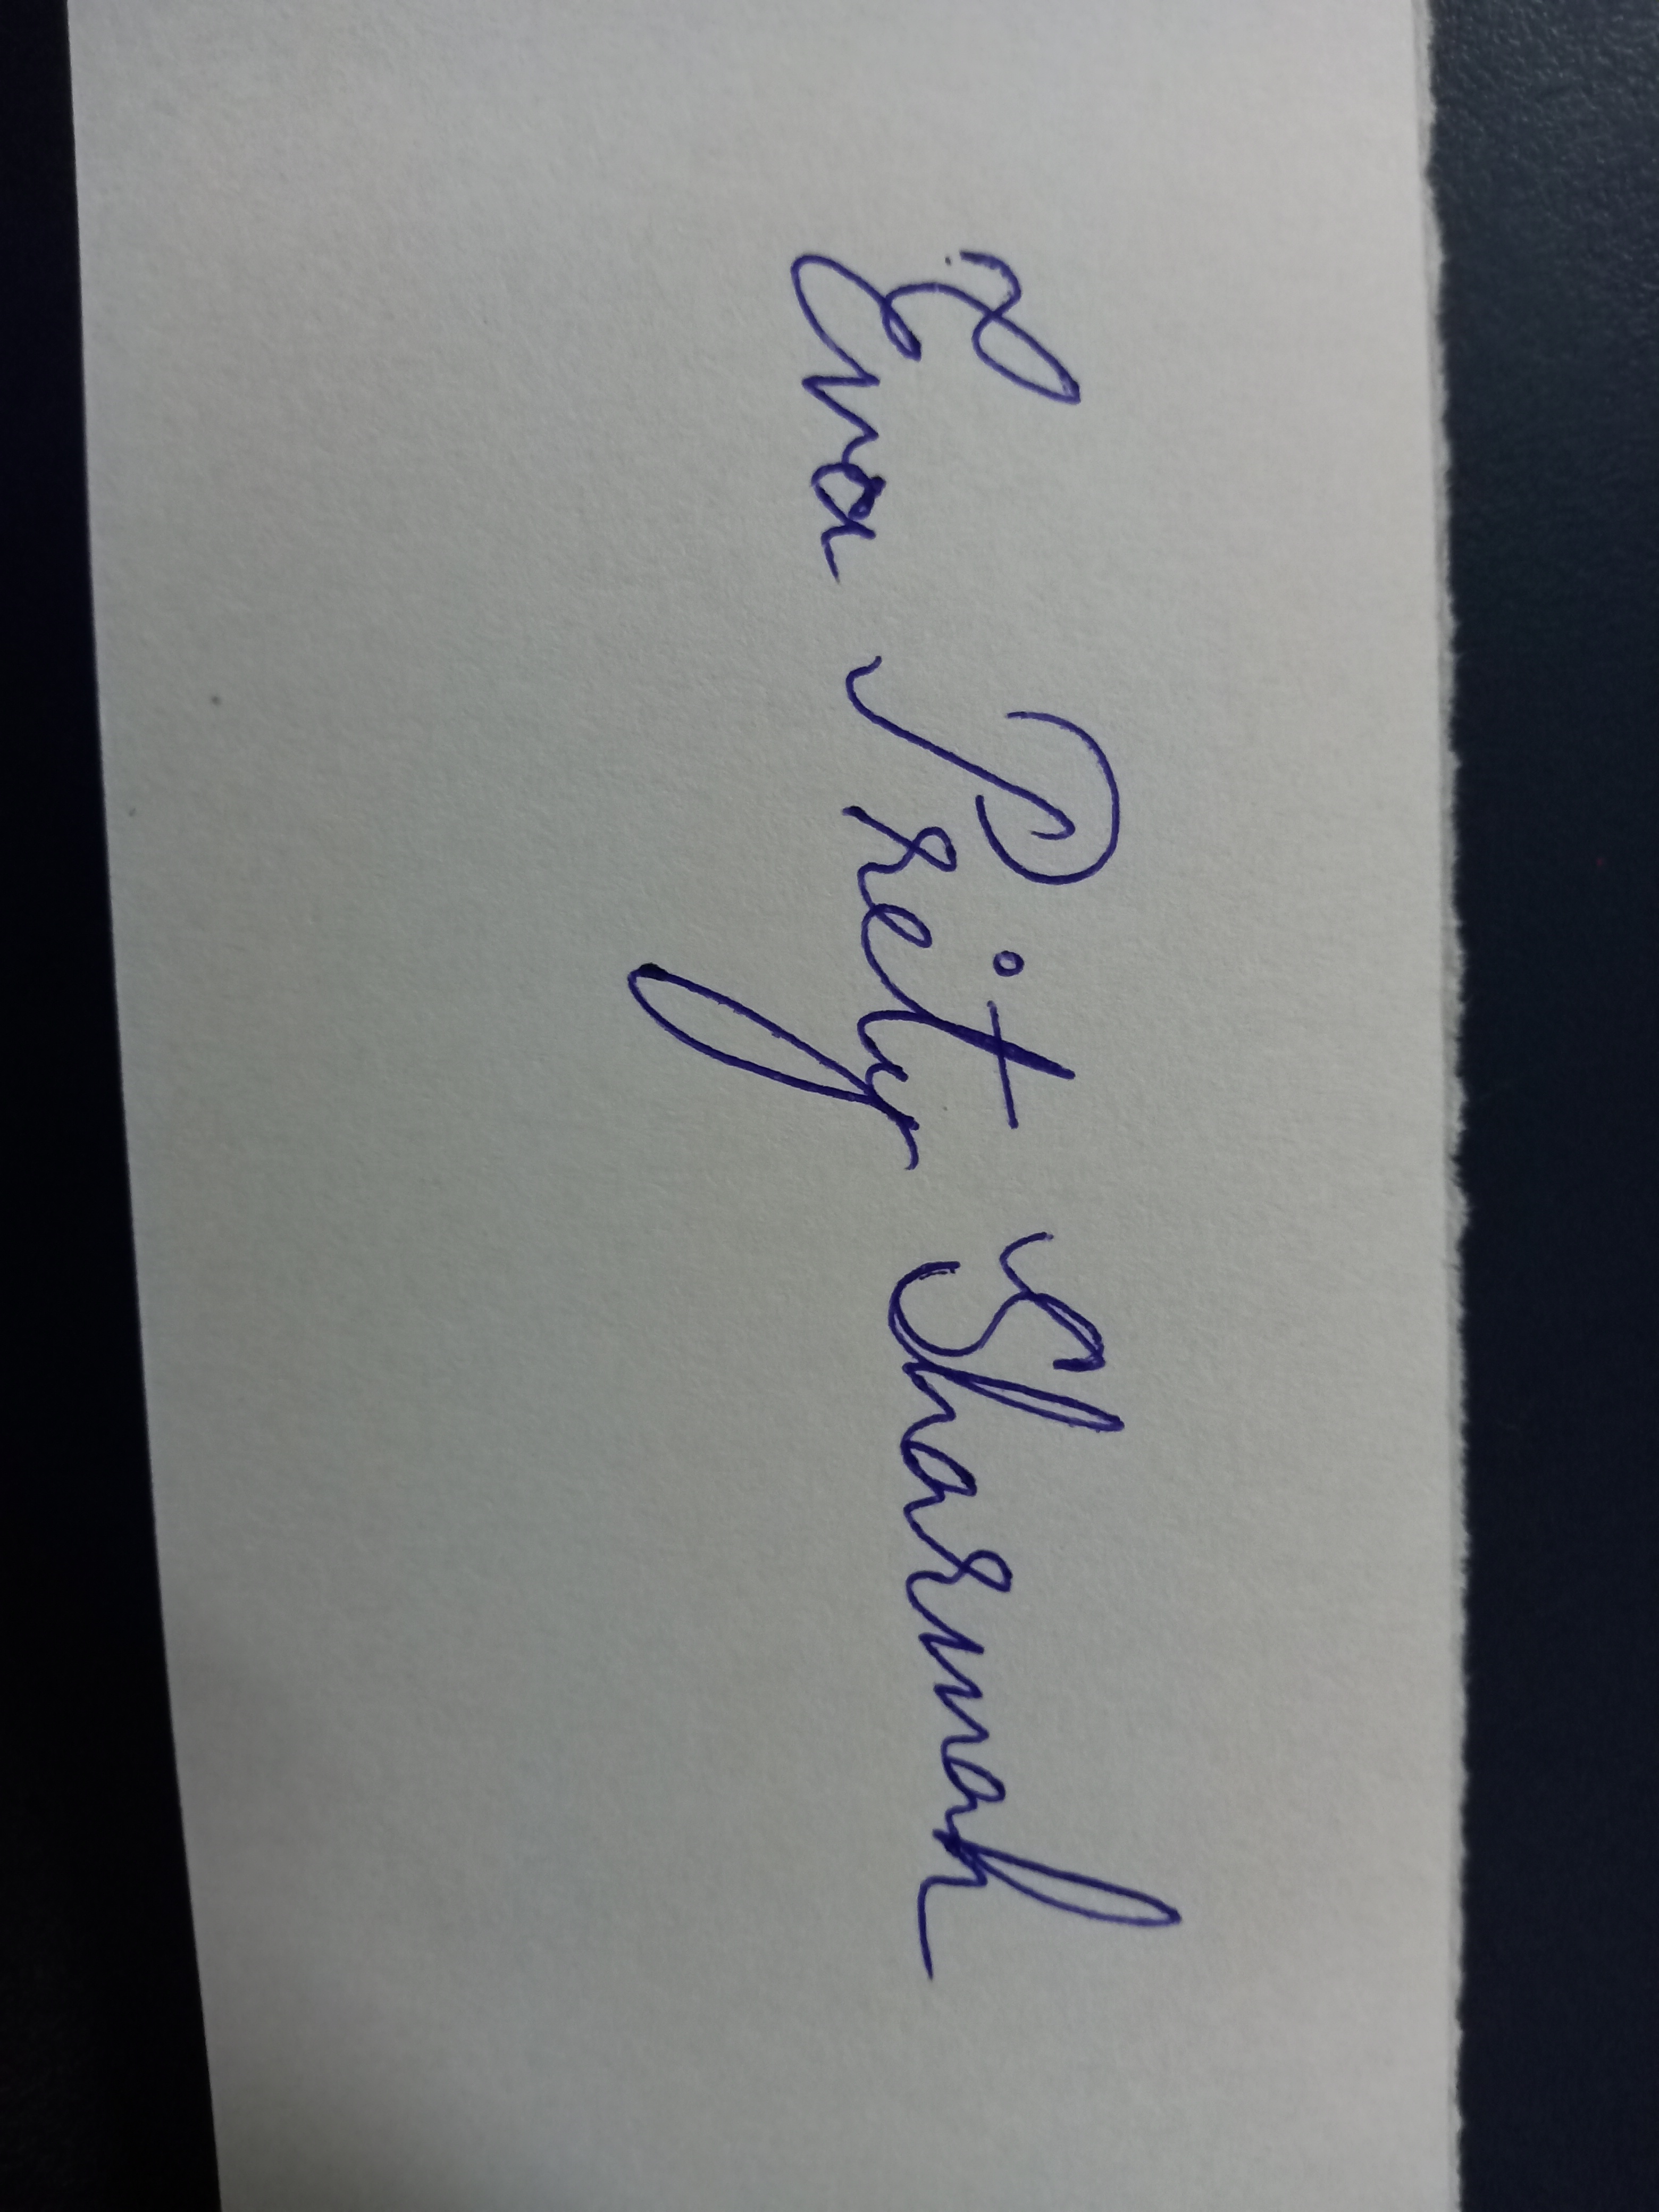 Eva Preity Sharmah